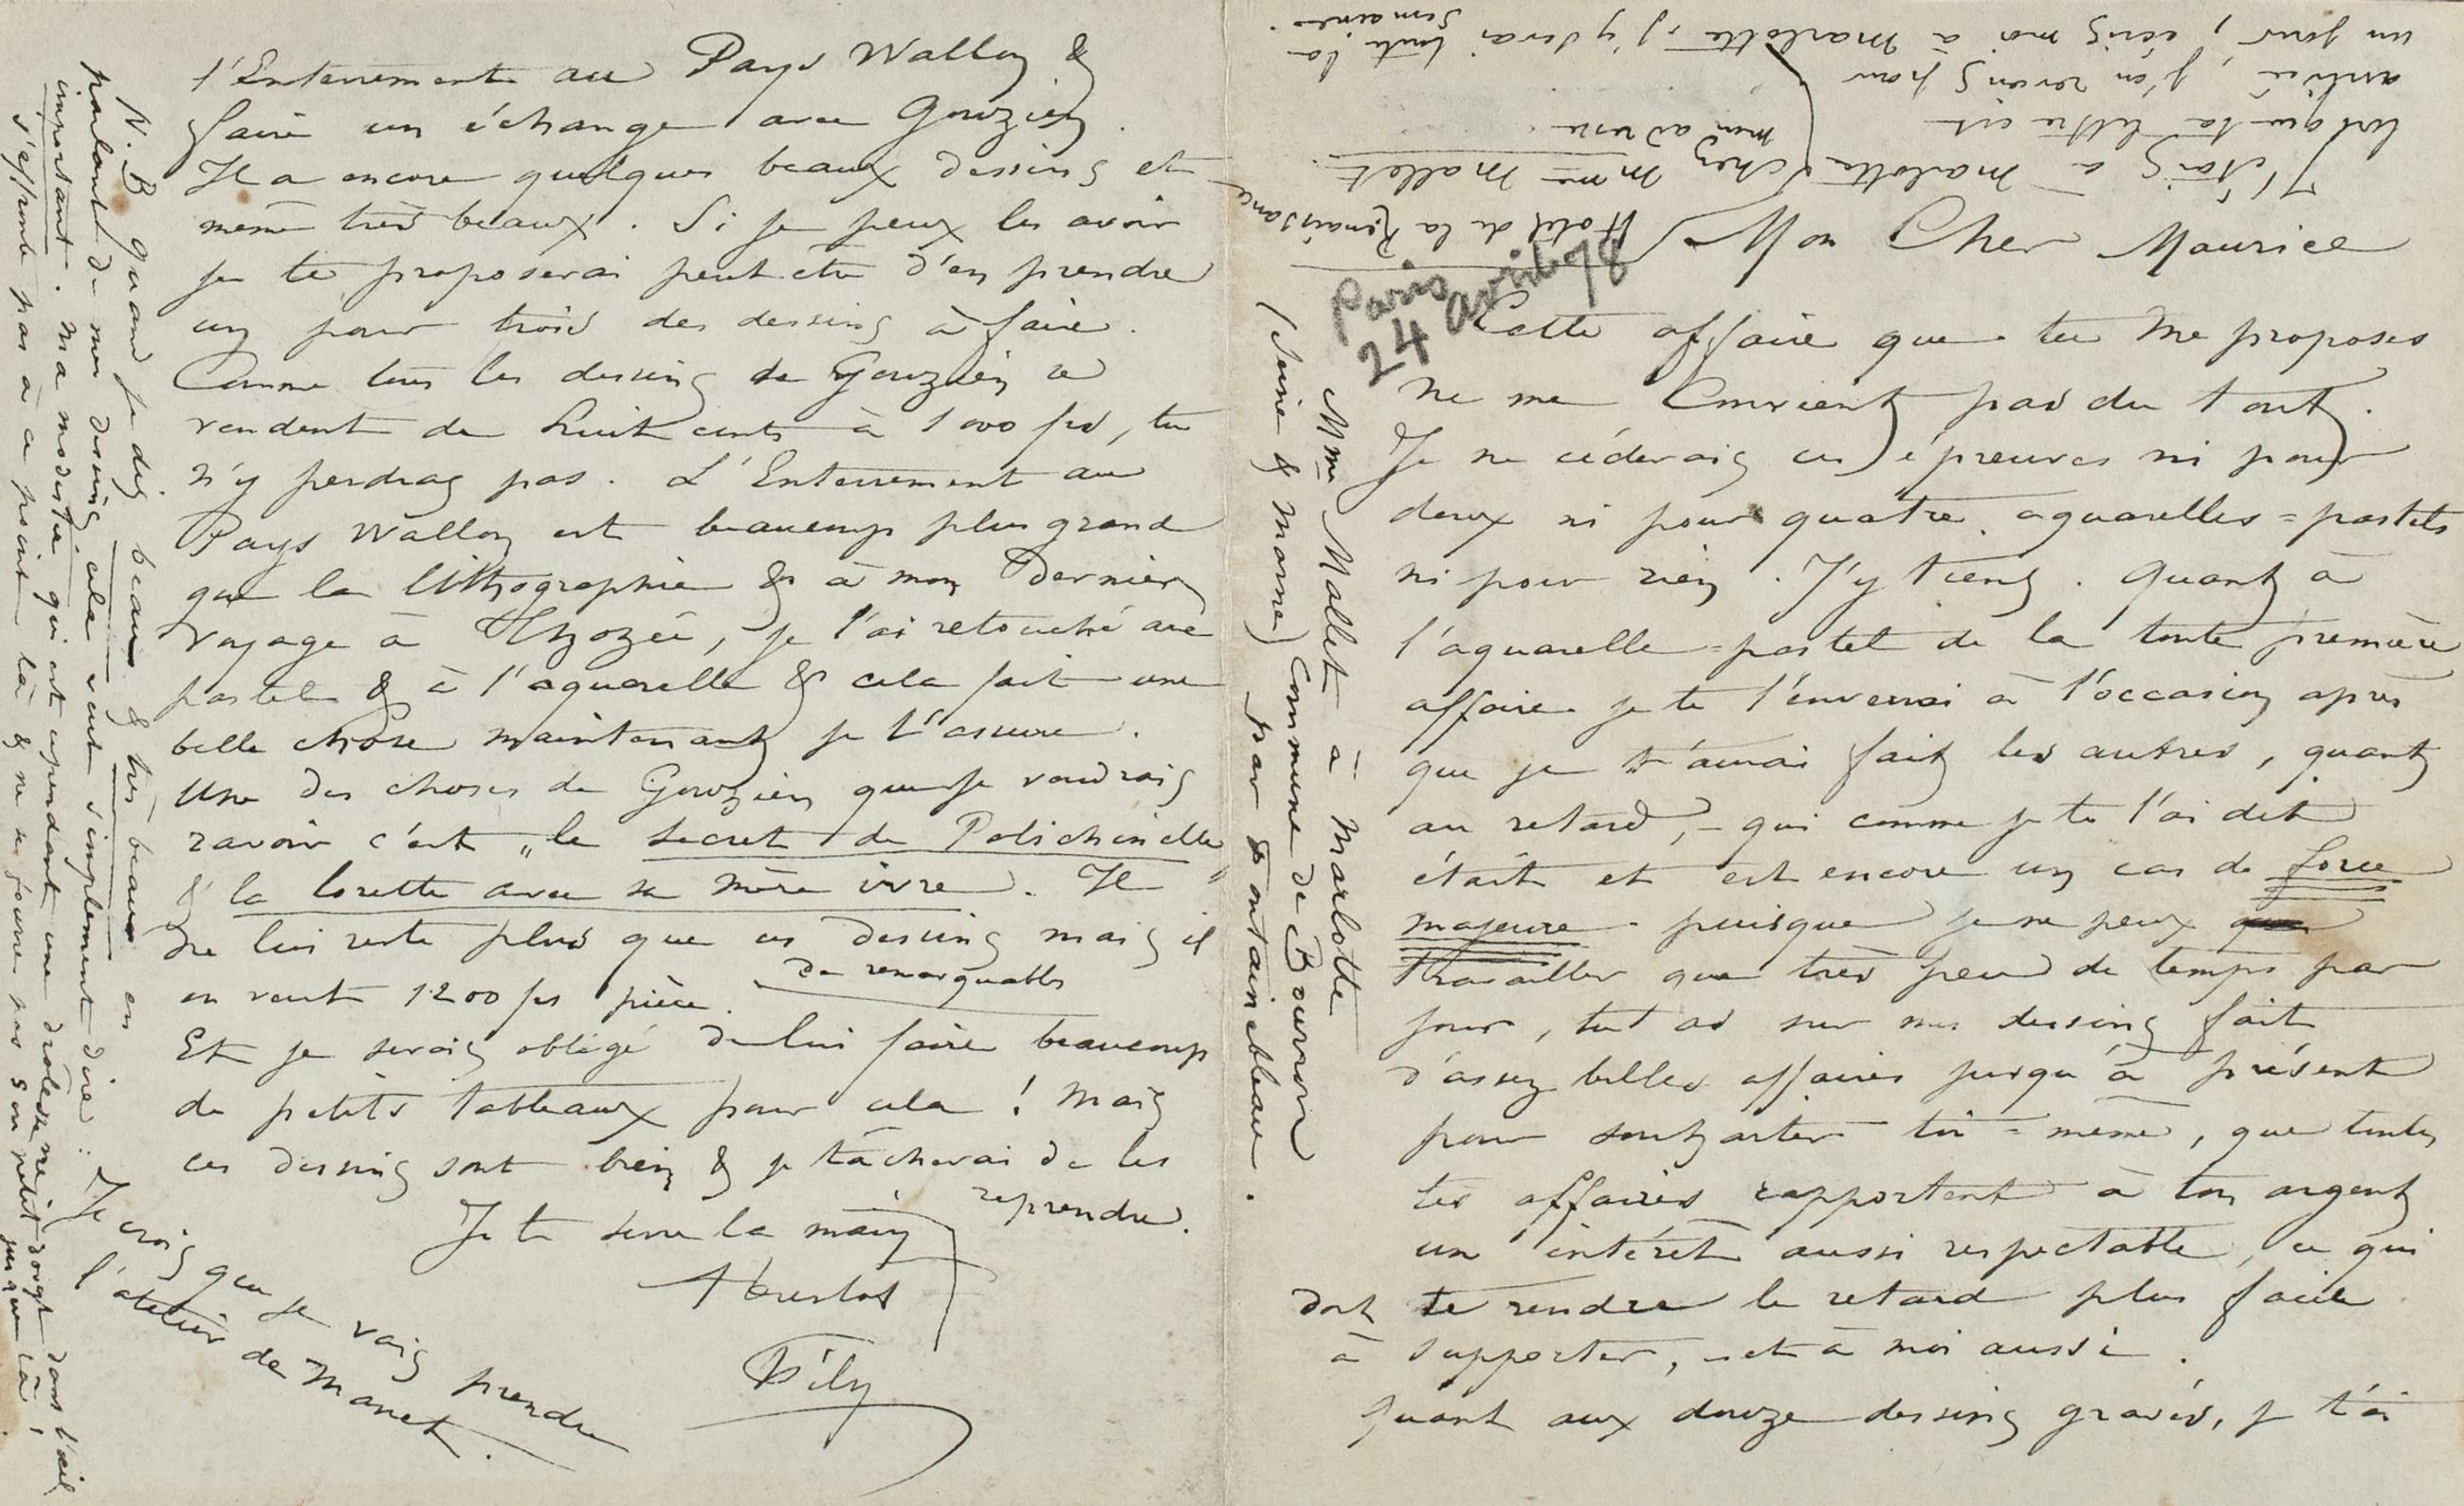 Mon Cher Maurice
Cette affaire que tu me proposes
ne me Convient pas du tout.
Je ne céderais ces épreuves ni pour
deux ni pour quatre aquarelles = pastels
ni pour rien. J'y tiens. Quant à
l'aquarelle = pastel de la toute première
affaire je te l'enverrai à l'occasion après
que je t'aurai fait les autres, quant
au retard, – qui comme je te l'ai dit
était et est encore un cas de force
majeure – puisque je ne peux que
travailler que très peu de temps par
jour, tu as sur mes dessins fait
d'assez belles affaires jusqu'à présent
pour souhaiter toi = même, que toutes
tes affaires rapportent à ton argent
un intérêt aussi respectable, ce qui
doit te rendre le retard plus facile
à supporter, – et à moi aussi.
Quant aux douze dessins gravés, je t'ai
J'étais à Marlotte
lorsque ta lettre est
arrivée, j'en reviens pour
un jour, écris moi à Marlotte, j'y serai toute la
semaine.
chez Mme Mallet.
mon adresse
Hotel de la Renaissance
Paris
24 avril 78
Mme Mallet à Marlotte
(Seine & Marne) Commune de Bourron
par Fontainebleau.
l'Enterrement au Pays Wallon &
faire un échange avec Gouzien.
Il a encore quelques beaux dessins et
même très beaux. Si je peux les avoir
je te proposerai peut être d'en prendre
un pour trois des dessins à faire.
Comme tous les dessins de Gouzien se
vendent de huit cents à 1000 frs, tu
n'y perdras pas. L'Enterrement au
Pays Wallon est beaucoup plus grand
que la lithographie & à mon dernier
voyage à Thozée, je l'ai retouché au
pastel & à l'aquarelle & cela fait une
belle chose maintenant je t'assure.
Une des choses de Gouzien que je voudrais
ravoir c'est „le secret de Polichinelle"
& la lorette avec sa mère ivre. Il
ne lui reste plus que ces dessins mais il
de remarquables
en veut 1200 frs pièce.
Et je serais obligé de lui faire beaucoup
de petits tableaux pour cela ! Mais
ces dessins sont bien & je tâcherai de les
reprendre.
Je te serre la main
Fély
N.B quand je dis beaux & très beaux en
parlant de mes dessins cela veut simplement dire :
important. Ma modestie qui est cependant une drôlesse ne petit doigt dans l'œil
s'effronte pas à ce point là & ne se fourre pas son jusque là !
Je crois que je vais prendre
l'atelier de Manet.